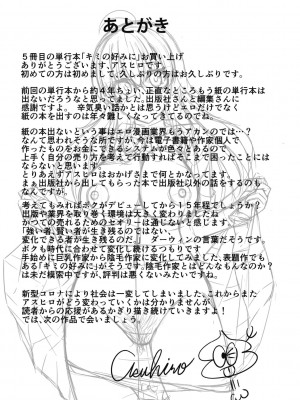 あとがき
５冊目の単行本「キミの好みに」お買い上げ
ありがとうございます、アスヒロです。
初めての方は初めまして、久しぶりの方はお久しぶりです。
前回の単行本から約４年ちょい、正直なところもう紙の単行本は
出ないだろうなと思ってました。出版社さんと編集さんに
感謝ですが。 辛気臭い話かとは思うけどエロだけでなく
紙の本を出すのは年々難しくなってきてるのでね、
紙の本出ないという事はエロ漫画業界もうアカンのでは…？
なんて思われそうな所ですが、今は電子書籍や作家個人で
作ったものをお金にできるシステムが色々とあるので
上手く自分の売り方を考えて行動すればそこまで困ったことには
ならないと思います。
とりあえずアスヒロはおかげさまで何とかなってます。
まぁ出版社から出してもらった本で出版社以外の話をするのも
なんですが。
考えてもみればボクがデビューしてから１５年程でしょうか？
出版や業界を取り巻く環境は大きく変わりましたね
かつての売れるためのセオリーは通じないと感じます。
「強い者、賢い者が生き残るのではない、
変化できる者が生き残るのだ。」 ダーウィンの言葉だそうです。
ボクも時代に合わせて変化して続けるつもりです
手始めに巨乳作家から陰毛作家に変化してみました、表題作でも
ある「キミの好みに」がそうです、陰毛作家とはどんなもんなのか？
は未だ模索中ですが、評判は悪くないみたいですね。
新型コロナにより社会は一変してしまいました、これからまた
アスヒロがどう変わっていくかは分かりませんが
読者からの応援があるかぎり描き続けていきますよ！
では、次の作品で会いましょう。
Asuhiro